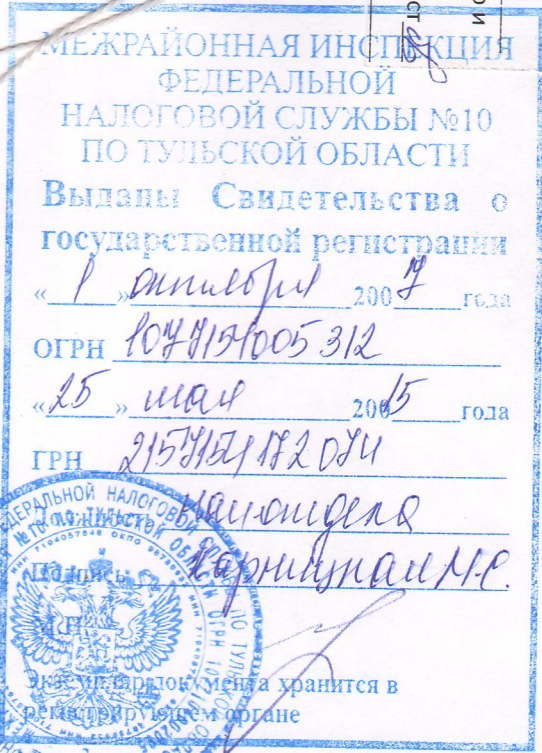 МЕЖРАЙОННАЯ ИНСПЕКЦИЯ
ФЕДЕРАЛЬНОЙ
НАЛОГОВОЙ СЛУЖБЫ №10
ПО ТУЛЬСКОЙ ОБЛАСТИ
Выданы Свидетельства о
государственной регистрации
« 1 » октября 2007 года
ОГРН 1077154005312
« 25 » мая 2015 года
ГРН 2157154172074
Должность нач. отдела
Подпись Карницкая М.С.
М.П.
Экземпляр документа хранится в
регистрирующем органе